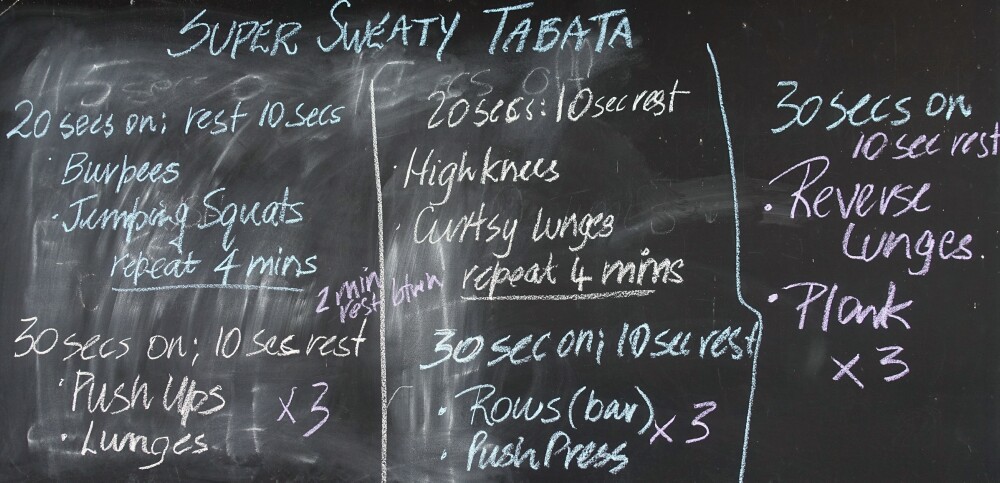 SUPER SWEATY TABATA
20 secs on; rest 10 secs
· Burpees
· Jumping Squats
repeat 4 mins
30 secs on; 10 secs rest
· Push Ups
· Lunges
x 3
2 min rest btwn
20 secs: 10 sec rest
· High knees
· Curtsy lunges
repeat 4 mins
30 sec on; 10 sec rest
· Rows (bar)
· Push Press
x 3
30 secs on
10 sec rest
· Reverse
Lunges.
· Plank
x 3